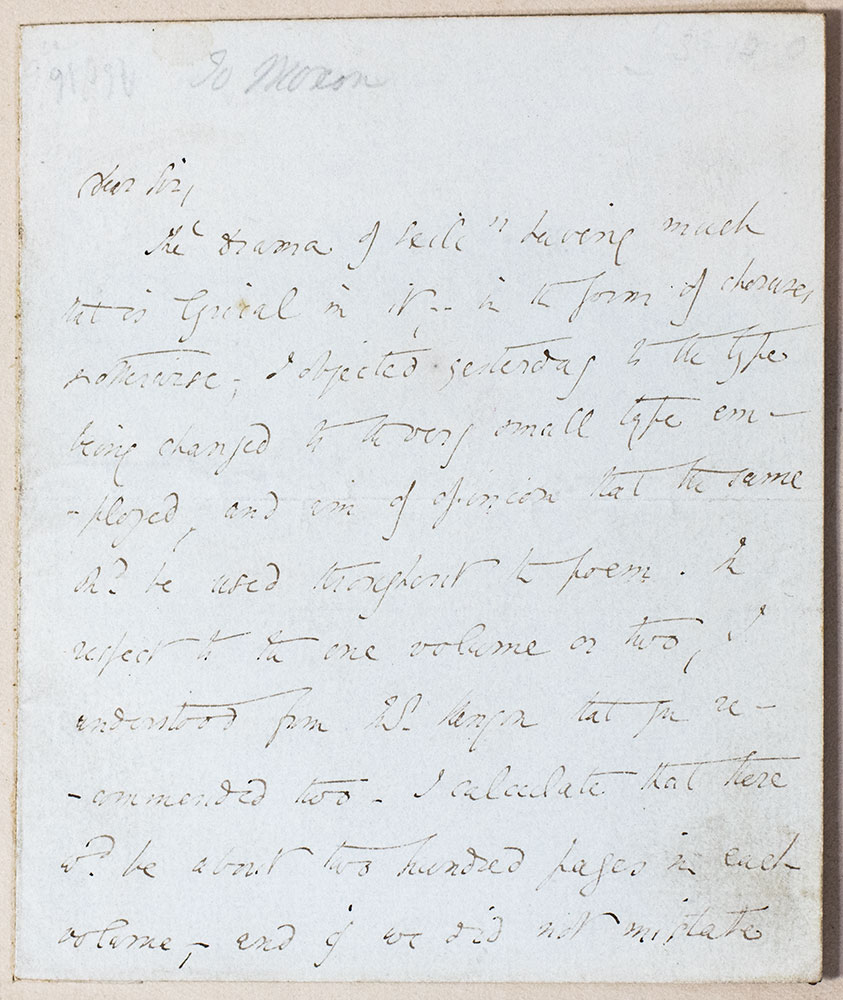 To Moxon
Dear Sir,
The "Drama of Exile" having much
that is lyrical in it,-- in the form of choruses
& otherwise, I objected yesterday to the type
being changed to the very small type em-
-ployed, and am of opinion that the same
shd. be used throughout the poem. In
respect to the one volume or two, I
understood from Mr. Kenyon that you re-
-commended two - I calculate that there
wd. be about two hundred pages in each
volume,- and if we did not mistake